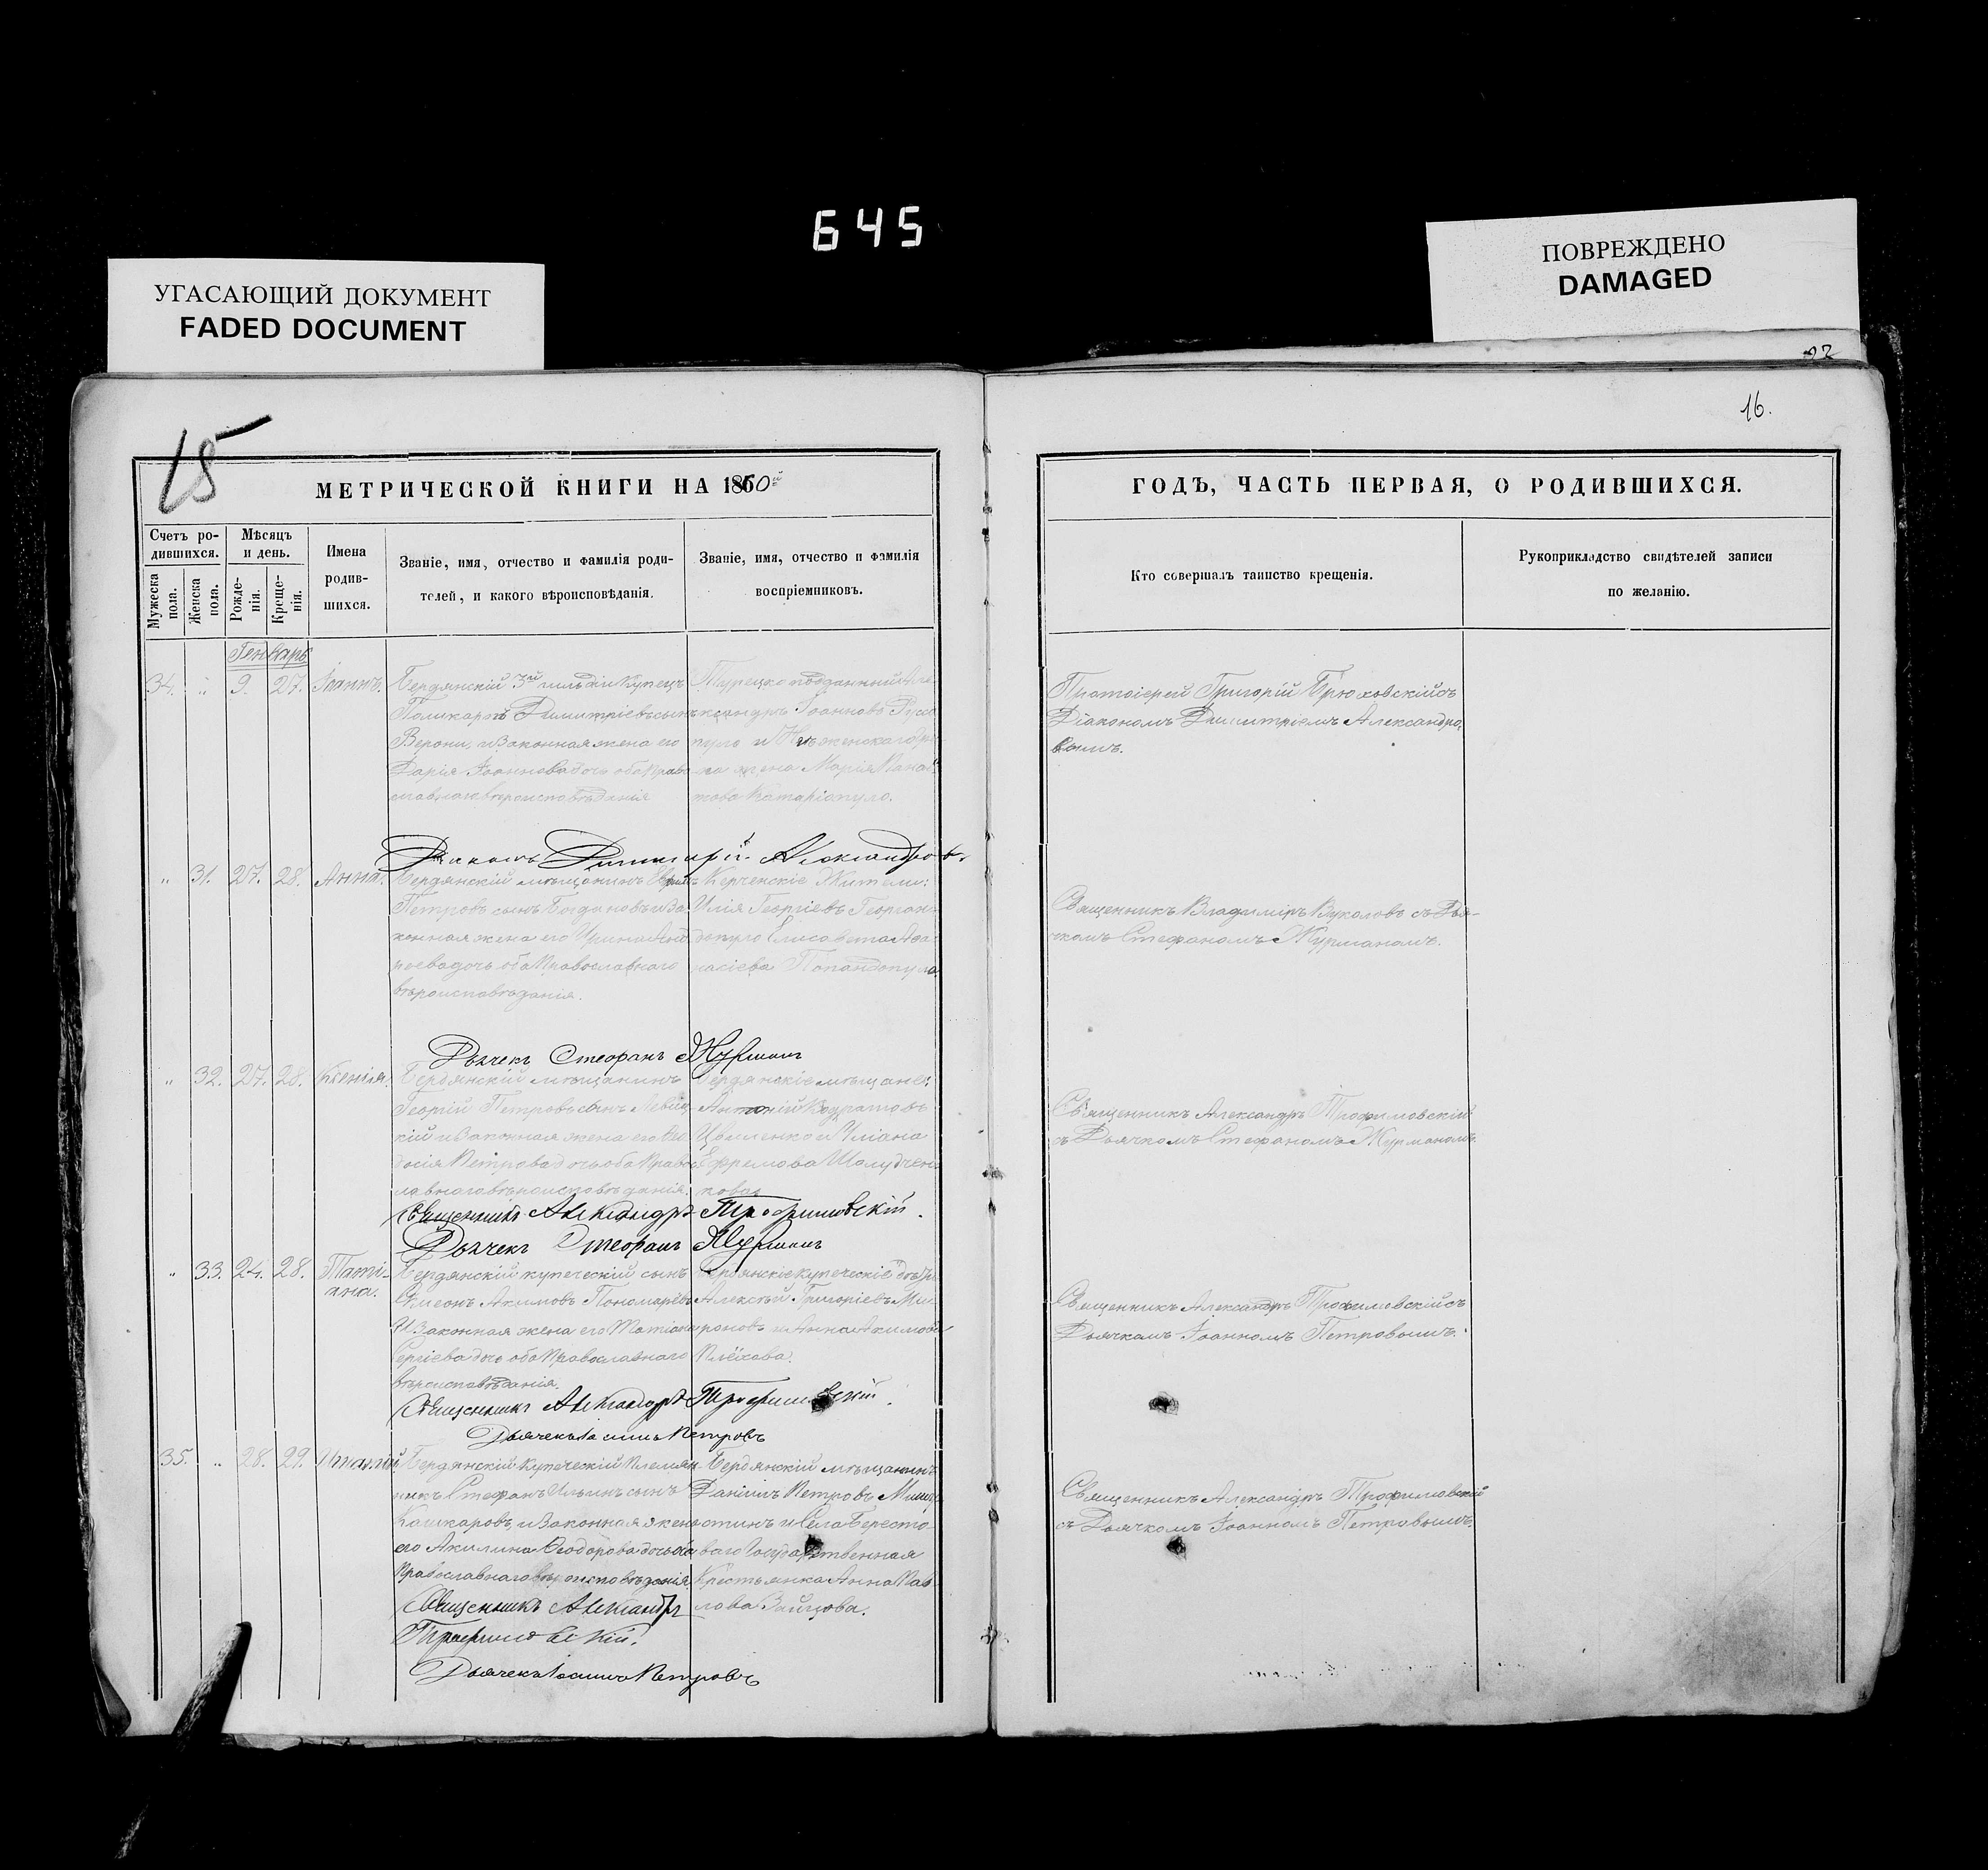 645
УГАСАЮЩИЙ ДОКУМЕНТ
FADED DOCUMENT
ПОВРЕЖДЕНО
DAMAGED
22
15
16.
МЕТРИЧЕСКОЙ КНИГИ НА 1860й
ГОДЪ, ЧАСТЬ ПЕРВАЯ, О РОДИВШИХСЯ.
Счетъ ро-
дившихся.
Мужеска
пола.
Женска
пола.
Мѣсяцъ
и день.
Рожде-
нія.
Креще-
нія.
Имена
родив-
шихся.
Званіе, имя, отчество и фамилія роди-
телей, и какого вѣроисповѣданія.
Званіе, имя, отчество и фамилія
воспріемниковъ.
Кто совершалъ таинство крещенія.
Рукоприкладство свидѣтелей записи
по желанію.
Генварь
34. " 9. 27. Іоаннъ.
Бердянскій 3й гильдіи купецъ
Поликарпъ Димитріевъ сынъ
Верони, и законная жена его
Дарія Іоаннова дочь оба право
славнаго вѣроисповѣданія
Турецко подданный Але
ксандръ Іоанновъ
и
жена Марія
това
Протоіерей Григорій Брюховскій съ
Діакономъ Димитріемъ Александро
вымъ.
Діаконъ Димитрій Александровъ
" 31. 27. 28. Анна.
Бердянскій мѣщанинъ
Петровъ сынъ Богдановъ и за
конная жена его Ирина Анд
реева дочь оба Православнаго
вѣроисповѣданія.
Керченскіе Жители:
Илія Георгіевъ Георган
допуло Елисавета Аѳа
насіева Попандопуло
Священникъ Владиміръ Вуколовъ съ Дья-
чкомъ Стефаномъ Журманомъ.
Дьячекъ Стефанъ Журманъ
" 32. 27. 28. Ксенія.
Бердянскій мѣщанинъ
Георгій Петровъ сынъ Левиц
кій и законная жена его Ѳео
досія Петрова дочь оба Правос
лавнаго вѣроисповѣданія.
Бердянскіе мѣщане:
Антоній
и Уліана
Ефремова Шолудчен
кова
Священникъ Александръ Трофимовскій
съ Дьячкомъ Стефаномъ Журманомъ.
Священникъ Александръ Трофимовскій.
Дьячекъ Стефанъ Журманъ
" 33. 24. 28. Таті-
ана.
Бердянскій купеческій сынъ
Симеонъ Акимовъ Пономарёвъ
и законная жена его Татіана
Сергіева дочь оба Православнаго
вѣроисповѣданія.
Бердянскіе купеческіе дѣти
Алексѣй Григоріевъ Ми
роновъ и Анна Акимова
Плёхова.
Священникъ Александръ Трофимовскій съ
Дьячкомъ Іоанномъ Петровымъ.
Священникъ Александръ Трофимовскій.
Дьячекъ Іоаннъ Петровъ
35. " 28. 29. Игнатій
Бердянскій купеческій племян
никъ Стефанъ Ильинъ сынъ
Кашкаровъ, и законная жена
его Акилина Ѳеодорова дочь оба
Православнаго вѣроисповѣданія.
Бердянскій мѣщанинъ
Даніилъ Петровъ
и села Бересто
ваго Государственная
Крестьянка Анна Пав
лова Зайцова.
Священникъ Александръ Трофимовскій
съ Дьячкомъ Іоанномъ Петровымъ.
Священникъ Александръ
Трофимовскій.
Дьячекъ Іоаннъ Петровъ